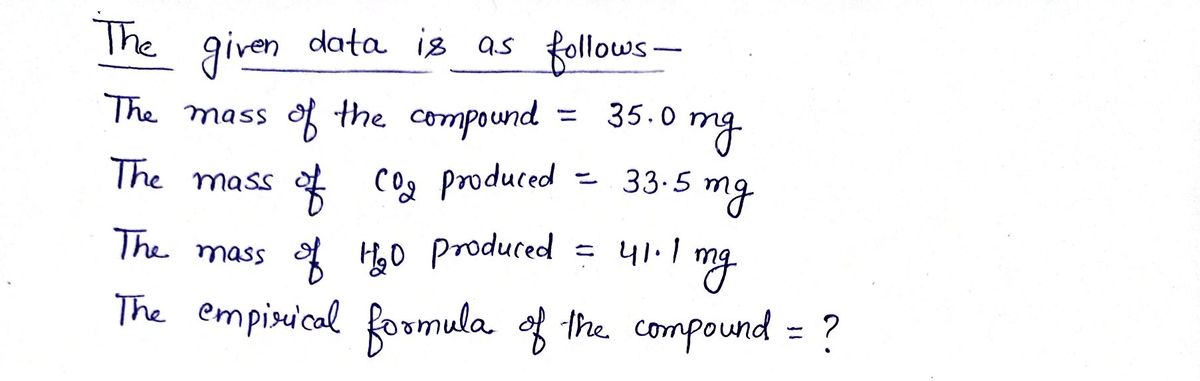 The given data is as follows—
The mass of the compound = 35.0 mg
The mass of CO2 produced = 33.5 mg
The mass of H2O produced = 41.1 mg
The empirical formula of the compound = ?